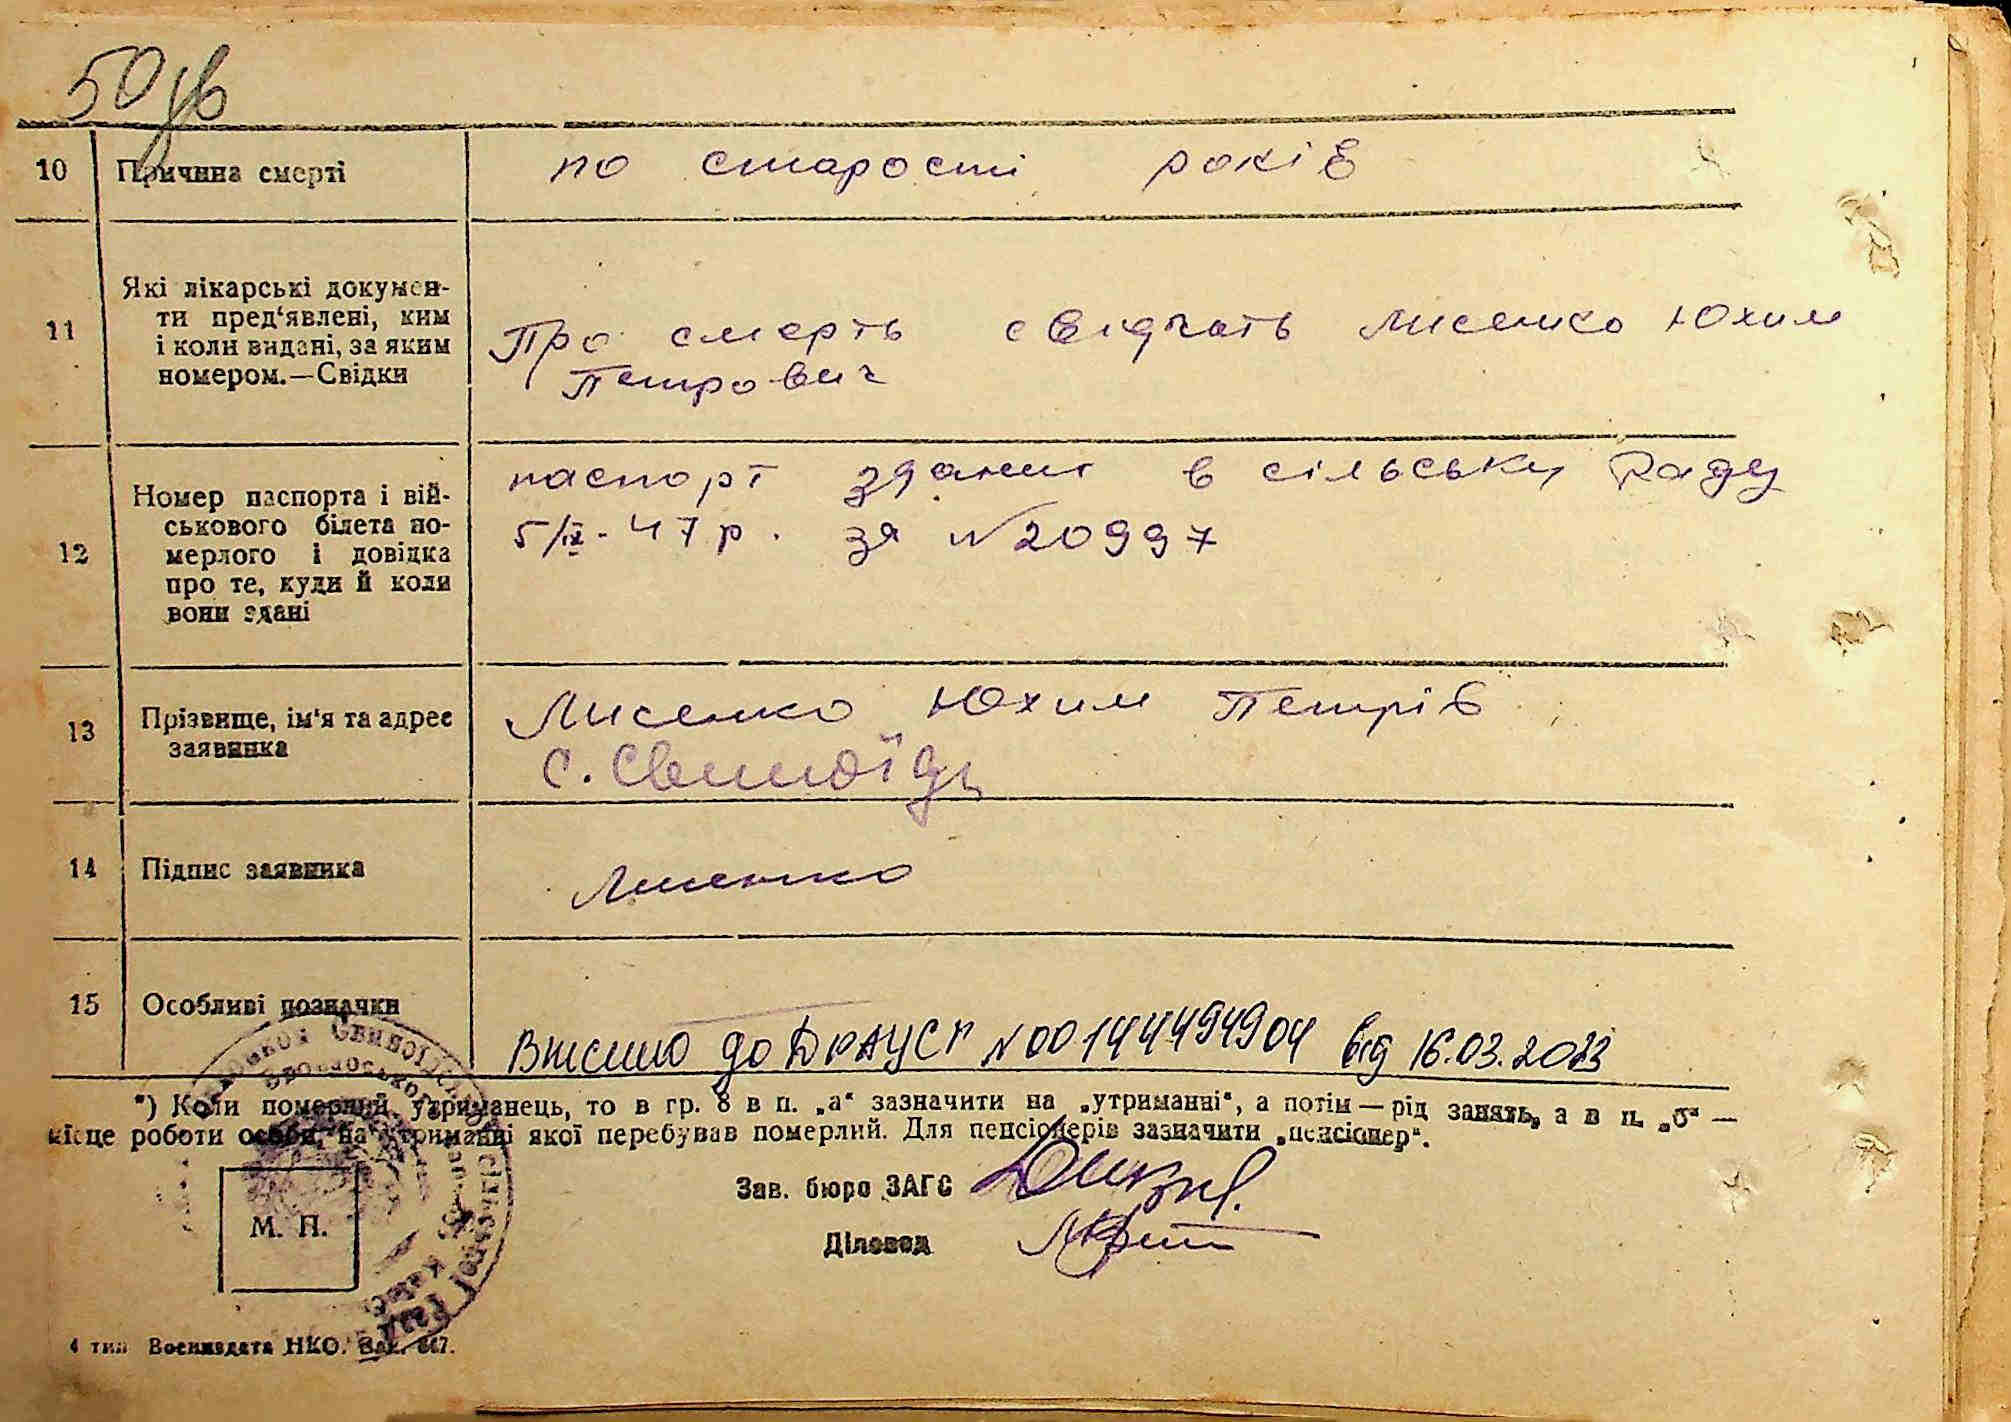 50 зв
10 Причина смерті по старості років
11 Які лікарські докумен-
ти пред‘явлені, ким
і коли видані, за яким
номером.—Свідки
Про смерть свідчать Лисенко Юхим
Петрович
12 Номер паспорта і вій-
ськового білета по-
мерлого і довідка
про те, куди й коли
вони здані
паспорт здании в сільську Раду
5/IX-47 р. за №20997
13 Прізвище, ім‘я та адрес
заявника
Лисенко Юхим Петрів
с. Свиноїди
14 Підпис заявника Лисенко
15 Особливі позначки
Внесено до ДРАЦСГ №00144494904 від 16.03.2023
*) Коли померлий утриманець, то в гр. 8 в п. „а“ зазначити на „утриманні“, а потім — рід занять, а в п. „б“ —
місце роботи особи, на утриманні якої перебував померлий. Для пенсіонерів зазначити „пенсіонер“.
Зав. бюро ЗАГС
Діловод
М. П.
4 тип Воениздата НКО. Зак. 447.